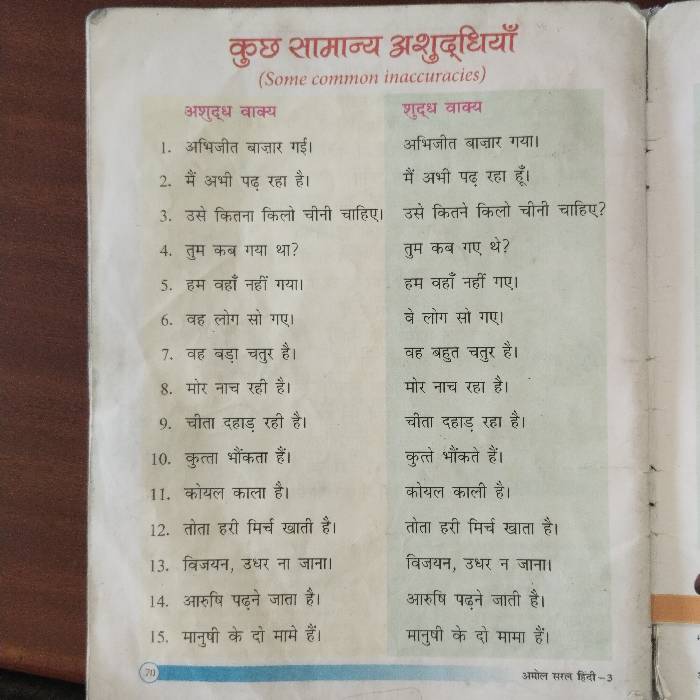 कुछ सामान्य अशुद्धियाँ
(Some common inaccuracies)
अशुद्ध वाक्य शुद्ध वाक्य
1. अभिजीत बाज़ार गई। अभिजीत बाज़ार गया।
2. मैं अभी पढ़ रहा है। मैं अभी पढ़ रहा हूँ।
3. उसे कितना किलो चीनी चाहिए। उसे कितने किलो चीनी चाहिए?
4. तुम कब गया था? तुम कब गए थे?
5. हम वहाँ नहीं गया। हम वहाँ नहीं गए।
6. वह लोग सो गए। वे लोग सो गए।
7. वह बड़ा चतुर है। वह बहुत चतुर है।
8. मोर नाच रही है। मोर नाच रहा है।
9. चीता दहाड़ रही है। चीता दहाड़ रहा है।
10. कुत्ता भौंकता हैं। कुत्ते भौंकते हैं।
11. कोयल काला है। कोयल काली है।
12. तोता हरी मिर्च खाती है। तोता हरी मिर्च खाता है।
13. विजयन, उधर ना जाना। विजयन, उधर न जाना।
14. आरुषि पढ़ने जाता है। आरुषि पढ़ने जाती है।
15. मानुषी के दो मामे हैं। मानुषी के दो मामा हैं।
70 अमोल सरल हिंदी–3